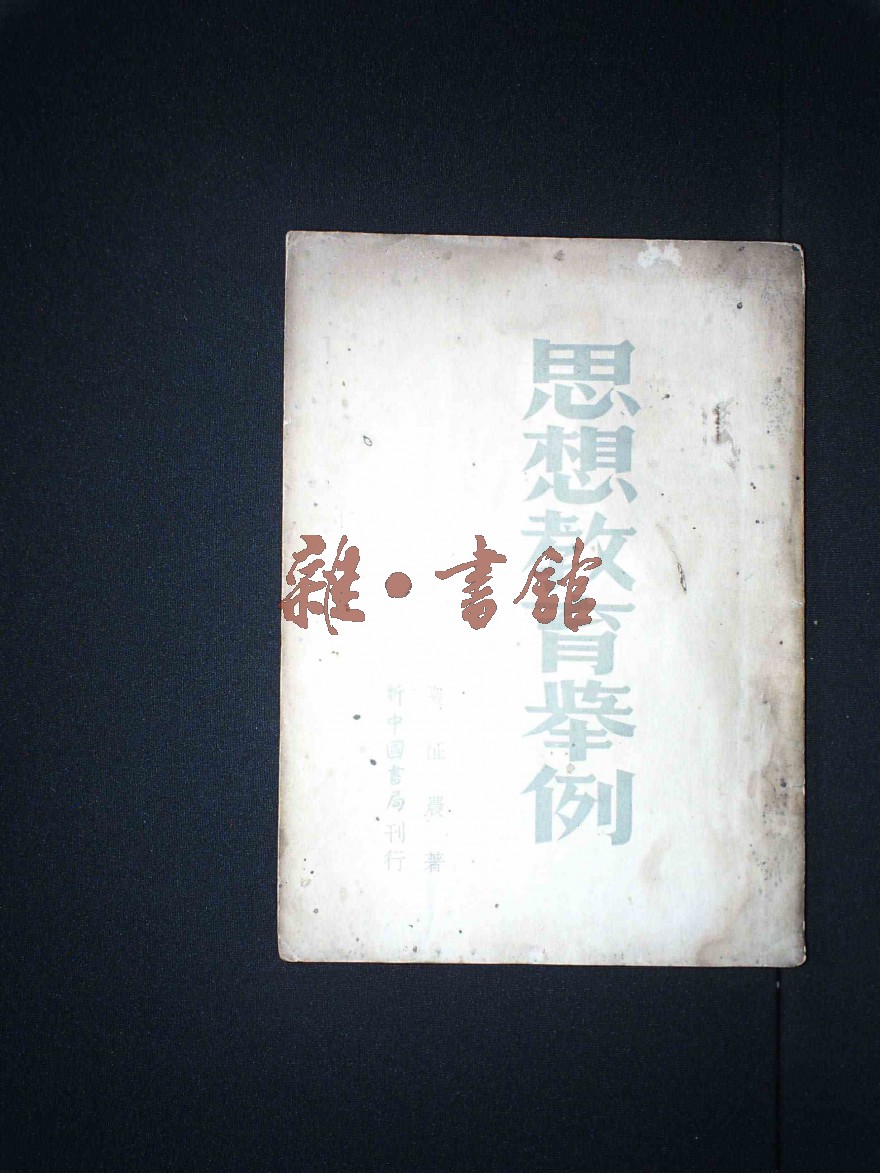 思想教育举例
夏征農著
新中國書局刊行
雜•書舘